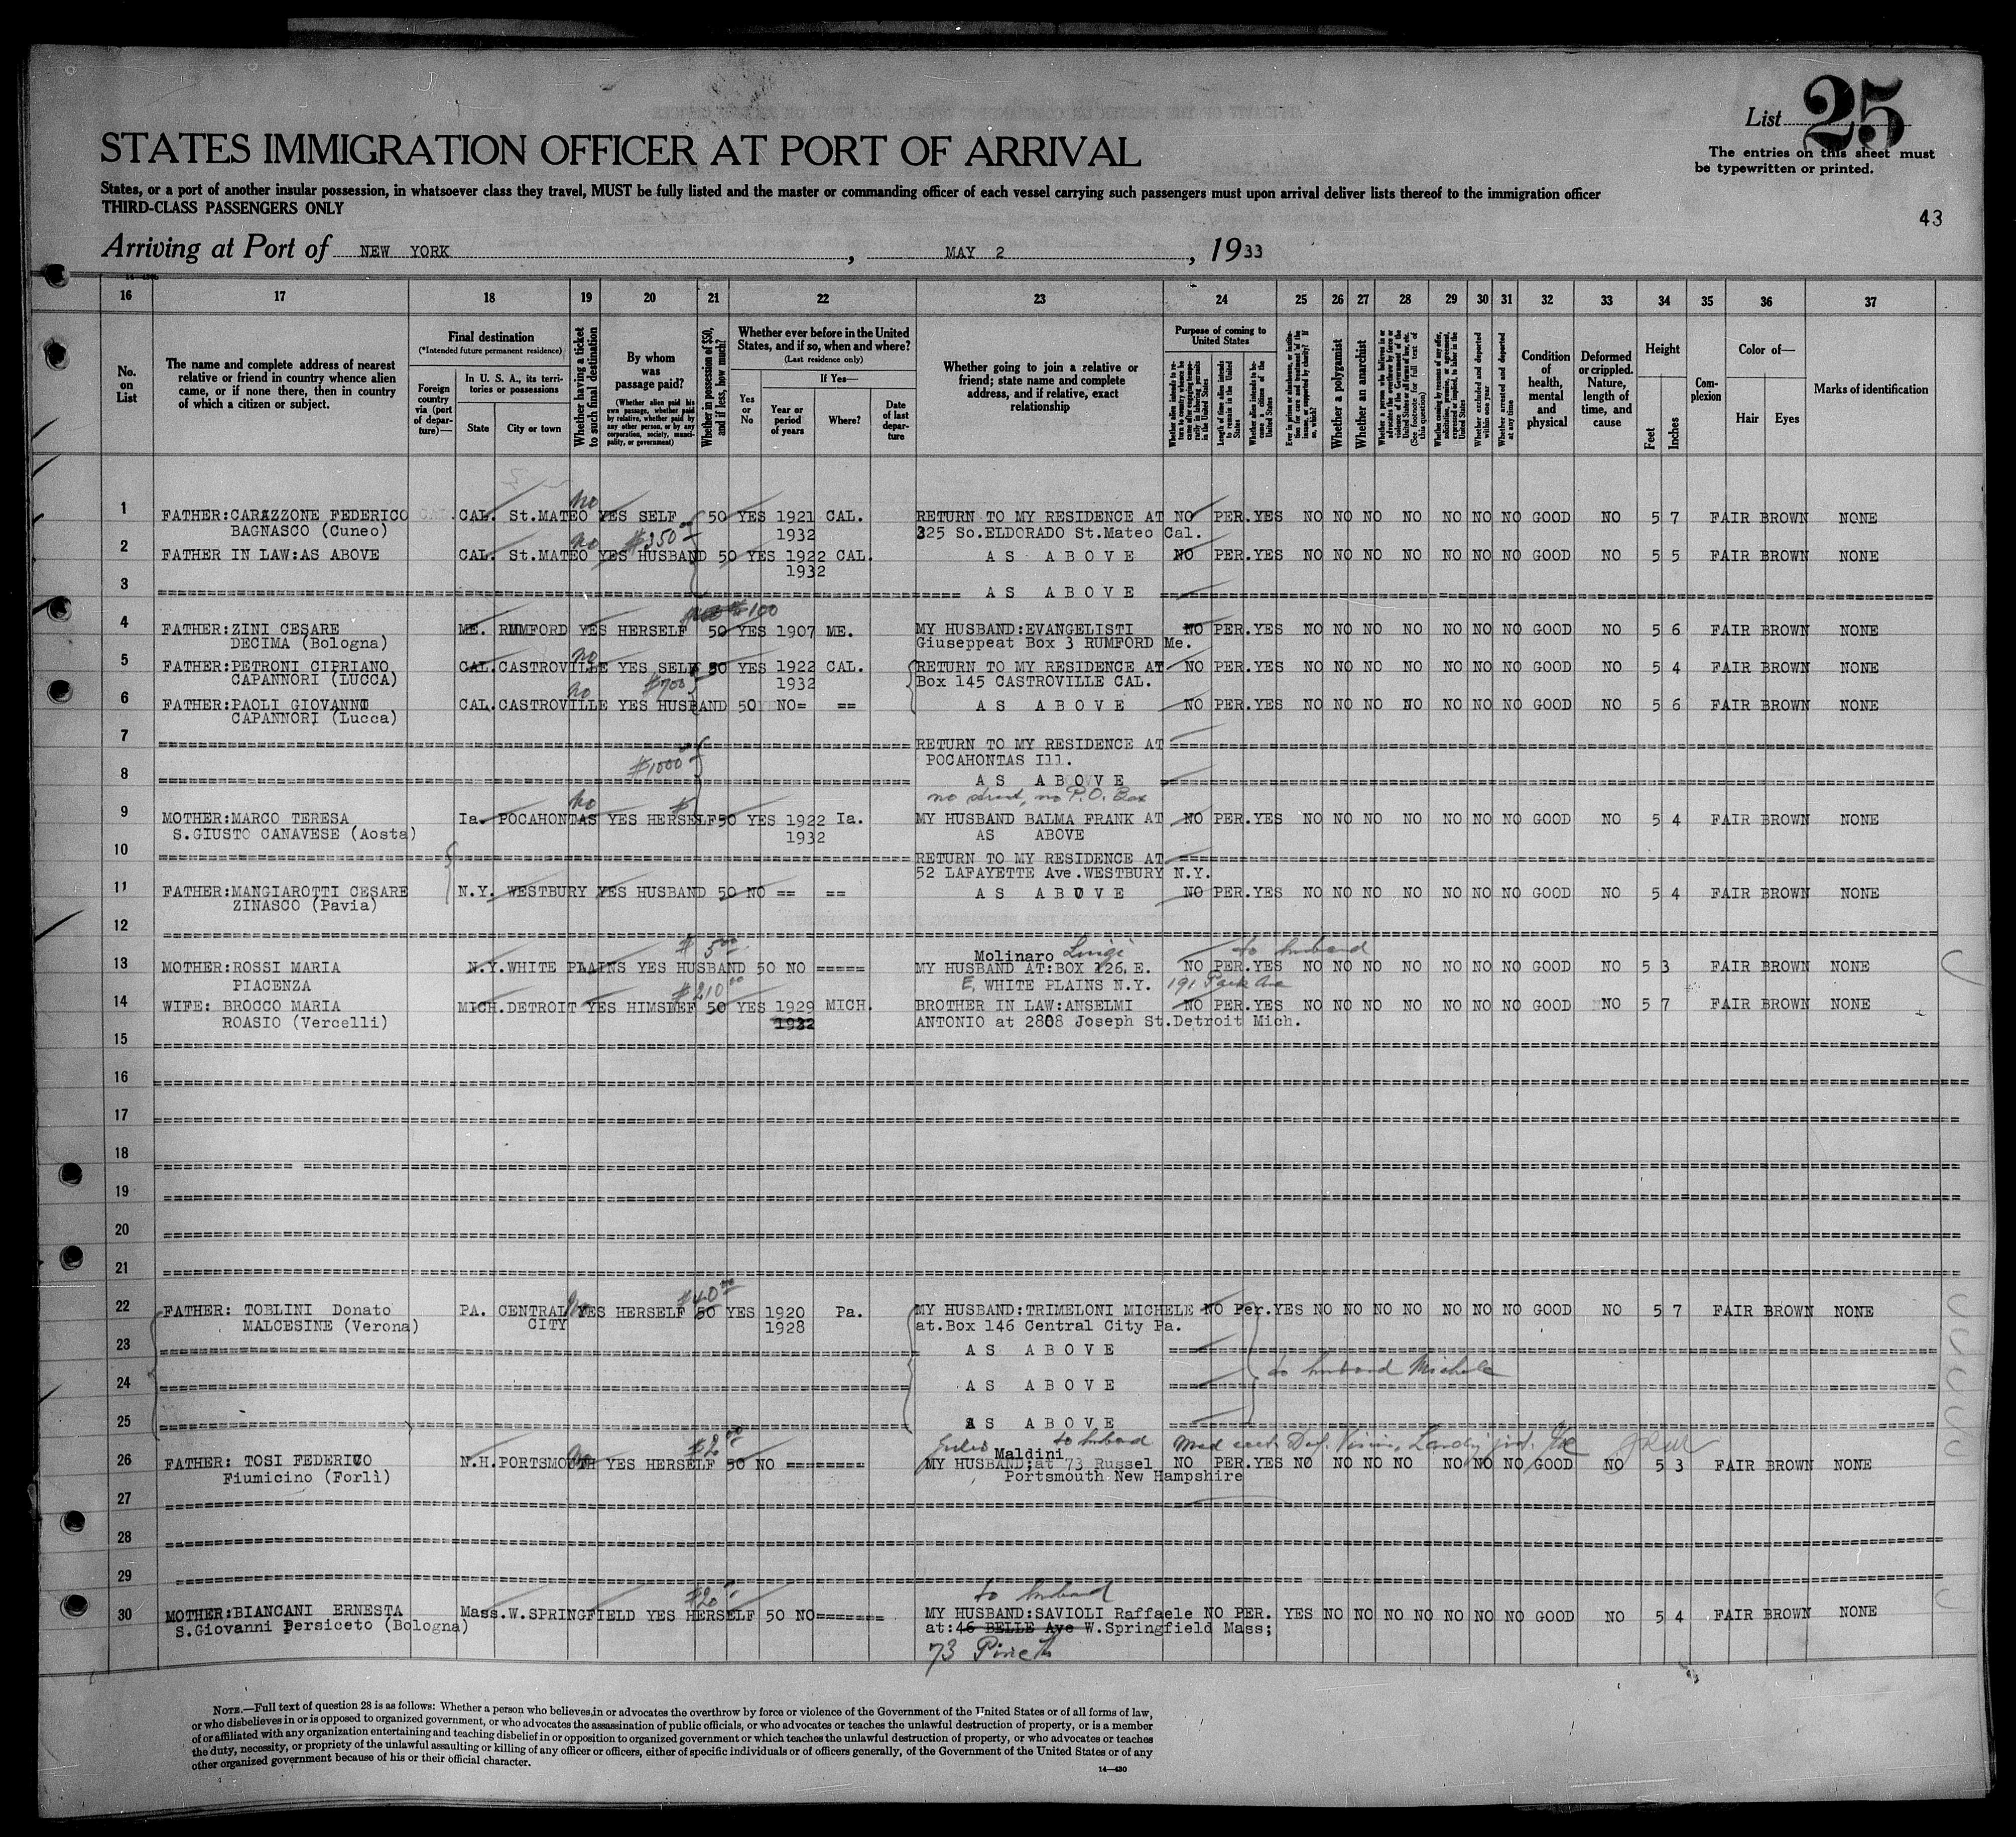 List 25
The entries on this sheet must
be typewritten or printed.
STATES IMMIGRATION OFFICER AT PORT OF ARRIVAL
States, or a port of another insular possession, in whatsoever class they travel, MUST be fully listed and the master or commanding officer of each vessel carrying such passengers must upon arrival deliver lists thereof to the immigration officer
THIRD-CLASS PASSENGERS ONLY
43
Arriving at Port of NEW YORK, MAY 2, 1933
16 17 18 19 20 21 22 23 24 25 26 27 28 29 30 31 32 33 34 35 36 37
No. on List
The name and complete address of nearest relative or friend in country whence alien came, or if none there, then in country of which a citizen or subject.
Final destination
(*Intended future permanent residence)
Foreign country via (port of departure)—
In U. S. A., its territories or possessions
State
City or town
Whether having a ticket to such final destination
By whom was passage paid?
(Whether alien paid his own passage, whether paid by relative, whether paid by any other person, or by any corporation, society, municipality, or government)
Whether in possession of $50, and if less, how much?
Whether ever before in the United States, and if so, when and where?
(Last residence only)
Yes or No
If Yes—
Year or period of years
Where?
Date of last departure
Whether going to join a relative or friend; state name and complete address, and if relative, exact relationship
Purpose of coming to United States
Length of time alien intends to remain in the United States
Whether alien intends to become a citizen of the United States
Whether a polygamist
Whether an anarchist
(See footnote for full text of this question)
Whether excluded and deported within one year
Whether arrested and deported at any time
Condition of health, mental and physical
Deformed or crippled. Nature, length of time, and cause
Height
Feet
Inches
Complexion
Color of—
Hair
Eyes
Marks of identification
no
1 FATHER:CARAZZONE FEDERICO CAL. St.MATEO YES SELF 50 YES 1921 CAL. RETURN TO MY RESIDENCE AT NO PER.YES NO NO NO NO NO NO NO GOOD NO 5 7 FAIR BROWN NONE
BAGNASCO (Cuneo) 1932 325 So.ELDORADO St.Mateo Cal.
no $350
2 FATHER IN LAW:AS ABOVE CAL. St.MATEO YES HUSBAND 50 YES 1922 CAL. AS ABOVE NO PER.YES NO NO NO NO NO NO NO GOOD NO 5 5 FAIR BROWN NONE
1932
3 AS ABOVE
$100
4 FATHER:ZINI CESARE ME. RUMFORD YES HERSELF 50 YES 1907 ME. MY HUSBAND:EVANGELISTI NO PER.YES NO NO NO NO NO NO NO GOOD NO 5 6 FAIR BROWN NONE
DECIMA (Bologna) Giuseppeat Box 3 RUMFORD Me.
no
5 FATHER:PETRONI CIPRIANO CAL.CASTROVILLE YES SELF 50 YES 1922 CAL. RETURN TO MY RESIDENCE AT NO PER.YES NO NO NO NO NO NO NO GOOD NO 5 4 FAIR BROWN NONE
CAPANNORI (LUCCA) 1932 Box 145 CASTROVILLE CAL.
no $700
6 FATHER:PAOLI GIOVANNI CAL.CASTROVILLE YES HUSBAND 50 NO= == AS ABOVE NO PER.YES NO NO NO NO NO NO NO GOOD NO 5 6 FAIR BROWN NONE
CAPANNORI (Lucca)
7 RETURN TO MY RESIDENCE AT
$1000 POCAHONTAS Ill.
8 AS ABOVE
no street, no P.O. Box
no $
9 MOTHER:MARCO TERESA Ia. POCAHONTAS YES HERSELF50 YES 1922 Ia. MY HUSBAND BALMA FRANK AT NO PER.YES NO NO NO NO NO NO NO GOOD NO 5 4 FAIR BROWN NONE
S.GIUSTO CANAVESE (Aosta) 1932 AS ABOVE
10 RETURN TO MY RESIDENCE AT
52 LAFAYETTE Ave.WESTBURY N.Y.
11 FATHER:MANGIAROTTI CESARE N.Y. WESTBURY YES HUSBAND 50 NO == == AS ABOVE NO PER.YES NO NO NO NO NO NO NO GOOD NO 5 4 FAIR BROWN NONE
ZINASCO (Pavia)
12
$ 5 00 Molinaro Luigi to husband
13 MOTHER:ROSSI MARIA N.Y.WHITE PLAINS YES HUSBAND 50 NO ===== MY HUSBAND AT:BOX 126.E. NO PER.YES NO NO NO NO NO NO NO GOOD NO 5 3 FAIR BROWN NONE
PIACENZA E. WHITE PLAINS N.Y. 191 Park Ave
$210 00
14 WIFE: BROCCO MARIA MICH.DETROIT YES HIMSMEF 50 YES 1929 MICH. BROTHER IN LAW:ANSELMI NO PER.YES NO NO NO NO NO NO NO GOOD NO 5 7 FAIR BROWN NONE
ROASIO (Vercelli) 1932 ANTONIO at 2808 Joseph St.Detroit Mich.
15
16
17
18
19
20
21
$40 00
22 FATHER: TOBLINI Donato PA. CENTRAL YES HERSELF 50 YES 1920 Pa. MY HUSBAND:TRIMELONI MICHELE NO Per.YES NO NO NO NO NO NO NO GOOD NO 5 7 FAIR BROWN NONE
MALCESINE (Verona) CITY 1928 at.Box 146 Central City Pa.
23 AS ABOVE
24 AS ABOVE to husband Michele
25 AS ABOVE
no $2 00 to husband
Maldini
26 FATHER: TOSI FEDERICO N.H.PORTSMOUTH YES HERSELF 50 NO ======== MY HUSBAND;at 73 Russel NO PER.YES NO NO NO NO NO NO NO GOOD NO 5 3 FAIR BROWN NONE
Fiumicino (Forlì) Portsmouth New Hampshire
27
28
29
$20 to husband
30 MOTHER:BIANCANI ERNESTA Mass.W.SPRINGFIELD YES HERSELF 50 NO======= MY HUSBAND:SAVIOLI Raffaele NO PER. YES NO NO NO NO NO NO NO GOOD NO 5 4 FAIR BROWN NONE
S.Giovanni Persiceto (Bologna) at:46 BELLE Ave W.Springfield Mass;
73
NOTE.—Full text of question 28 is as follows: Whether a person who believes in or advocates the overthrow by force or violence of the Government of the United States or of all forms of law,
or who disbelieves in or is opposed to organized government, or who advocates the assassination of public officials, or who advocates or teaches the unlawful destruction of property, or is a member
of or affiliated with any organization entertaining and teaching disbelief in or opposition to organized government or which teaches the unlawful destruction of property, or who advocates or teaches
the duty, necessity, or propriety of the unlawful assaulting or killing of any officer or officers, either of specific individuals or of officers generally, of the Government of the United States or of any
other organized government because of his or their official character.
14—430